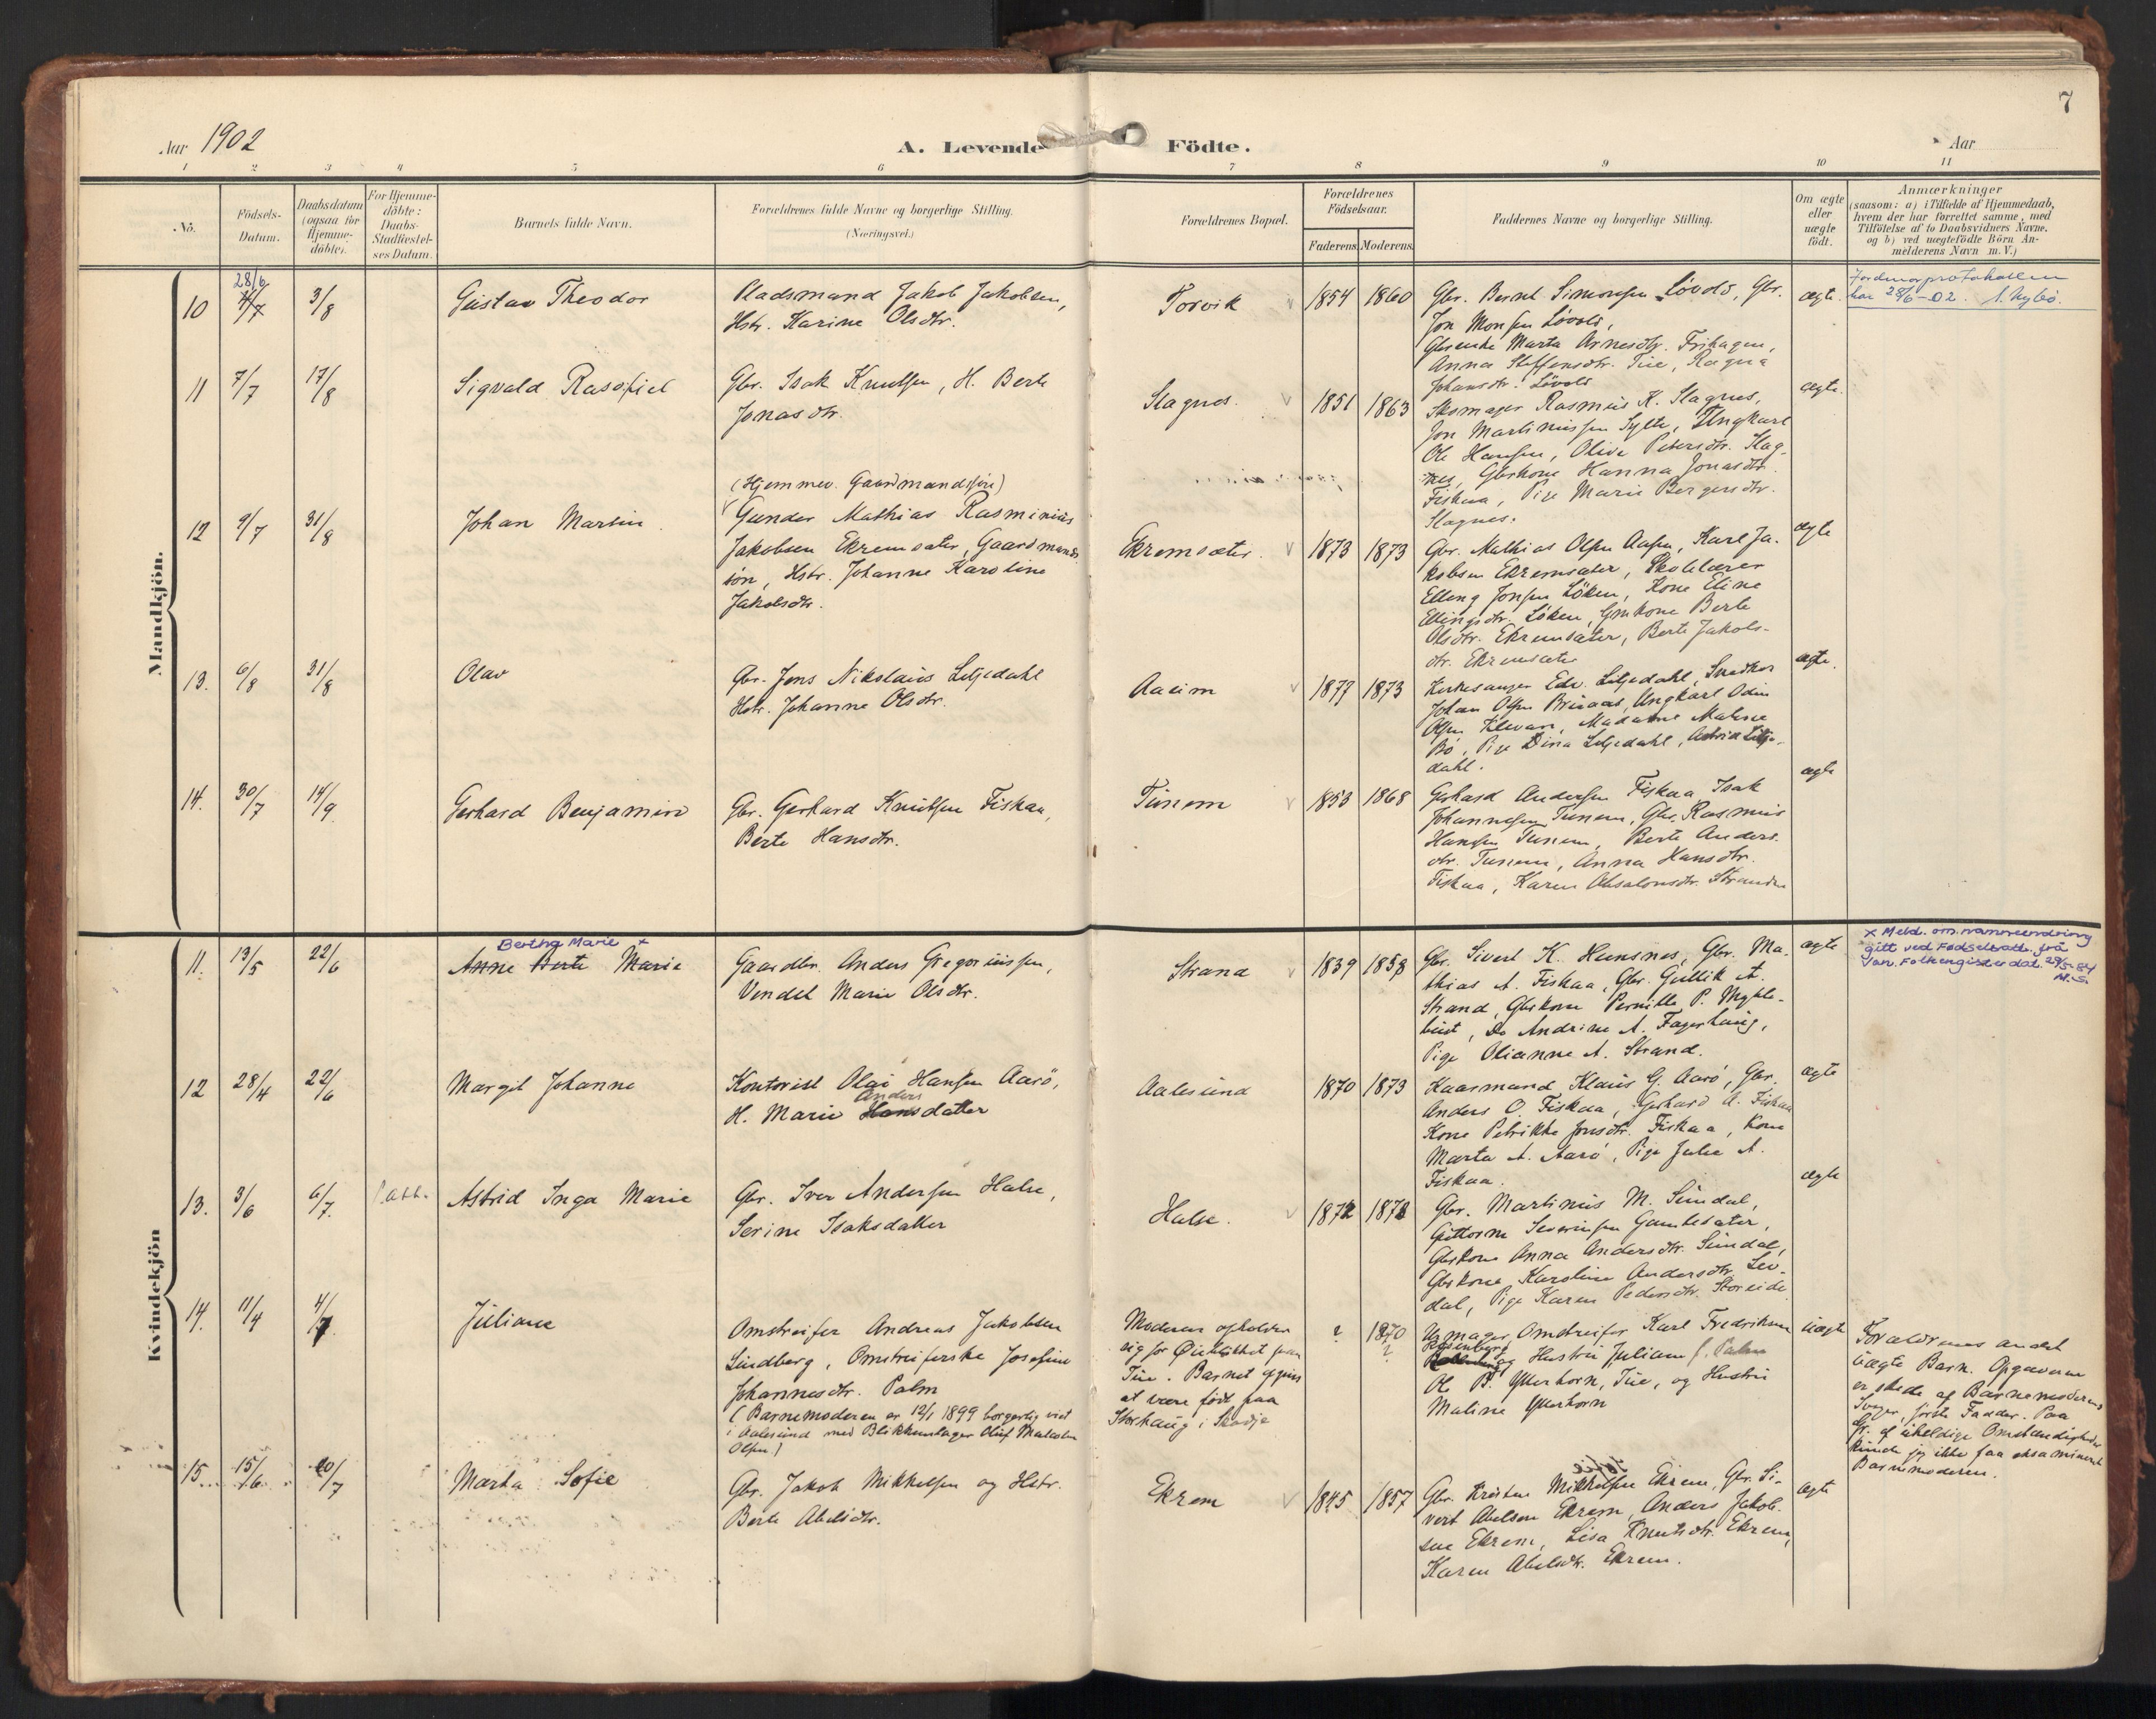 7
Aar 1902
A. Levende Födte.
Aar
1 2 3 4 5 6 7 8 9 10 11
No.
Födsels-
Datum.
Daabsdatum
(ogsaa for
Hjemme-
döbte).
For Hjemme-
döbte:
Daabs-
Stadfæstel-
ses Datum.
Barnets fulde Navn.
Forældrenes fulde Navne og borgerlige Stilling.
(Næringsvei.)
Forældrenes Bopæl.
Forældrenes
Födselsaar.
Faderens Moderens
Faddernes Navne og borgerlige Stilling.
Om ægte
eller
uægte
födt.
Anmærkninger
(saasom: a) i Tilfælde af Hjemmedaab,
hvem der har forrettet samme, med
Tilföielse af to Daabsvidners Navne.
og b) ved uægtefödte Börn An-
melderens Navn m.V.)
Mandkjön.
10
28/6
4/7
3/8
Gustav Theodor
Pladsmand Jakob Jakobsen,
Hstr. Karine Olsdtr.
Torvik
1854 1860
Gbr. Bernt Simonsen Løvold, Gbr.
Jon Monsen Løvold,
Gbrenke Marta Arnesdtr. Frihagen,
Anna Steffensdtr. Tue, Ragna
Johansdtr. Løvold
ægte.
Jordmorprotokollen
har 28/6-02.
11
7/7
17/8
Sigvald Rasofiel
Gbr. Isak Knutsen, H. Berte
Jonasdtr.
Slagnes.
1851 1863
Skomager Rasmus K. Slagnes,
Jon Martinussen Sylte, Ungkarl
Ole Hansen, Olive Petersdtr. Slag-
nes, Gbrkone Hanna Jonasdtr.
Fiskaa, Pige Marie Bergersdtr.
Slagnes.
ægte.
12
9/7
31/8
Johan Martin
(Hjemmev. Gaardmandssøn)
Gunder Mathias Rasminius
Jakobsen Ekremsæter, Gaardmands
søn, Hstr. Johanne Karoline
Jakobsdtr.
Ekremsæter.
1873 1873
Gbr. Mathias Olsen Aasen, Karl Ja-
kobsen Ekremsæter, Skolelærer
Elling Jonsen Löken, Kone Eline
Ellingsdtr. Löken, Gmkone Berte
Olsdtr. Ekremsæter, Berte Jakobs-
dtr. Ekremsæter
ægte
13.
6/8
31/8
Olav
Gbr. Jens Nikolaus Liljedahl
Hstr. Johanne Olsdtr.
Aaeim
1877 1873
Kirkesanger Edv. Liljedahl, Snedker
Johan Olsen Bruaas, Ungkarl Odin
Olsen Klevan, Madame Maline
Bö, Pige Dina Liljedahl, Astrid Lilje-
dahl.
ægte.
14.
30/7
14/9
Gerhard Benjamin
Gbr. Gerhard Knutsen Fiskaa,
Berte Hansdtr.
Tunem
1853 1868
Gerhard Andersen Fiskaa Isak
Johannesen Tunem, Gbr. Rasmus
Hansen Tunem, Berte Anders-
dtr. Tunem, Anna Hansdtr.
Fiskaa, Karen Absalonsdtr. Stranden
ægte
Kvindekjön
11.
13/5
22/6
Bertha Marie x
Anne Berte Marie
Gaardbr. Anders Gregoriussen,
Vendel Marie Olsdtr.
Strand
1839 1858
Gbr. Sivert K. Hunsnes, Gbr. Ma-
thias A. Fiskaa, Gbr. Gullik A.
Strand, Gbrkone Pernille P. Mykle-
bust, Do Andrine A. Fagerhaug,
Pige Olianne A. Strand.
ægte
x Meld. om navneendring
gitt ved Fødselsatt. frå
Van. Folkeregister dat. 29/5-84
M.S.
12
28/4
22/6
Margit Johanne
Kontorist Olai Hansen Aarö,
H. Marie Hansdatter
Anders
Aalesund
1870 1873
Kaarmand Klaus G. Aarö, Gbr.
Anders O. Fiskaa, Gerhard A. Fiskaa
Kone Petrikke Jonsdtr. Fiskaa, Kone
Marta A. Aarö, Pige Julie A.
Fiskaa.
ægte
13.
3/6
6/7.
Astrid Inga Marie
Gbr. Iver Andersen Halse,
Serine Isaksdatter
Halse.
1872 1878
Gbr. Martinus M. Sundal,
Guttorm Severinsen Gamlesæter,
Gbrkone Anna Andersdtr. Sundal,
Gbrkone Karoline Andersdtr. Lev-
dal, Pige Karen Pedersdtr. Storeide
ægte
14.
11/4
4/7
Juliane
Omstreifer Andreas Jakobsen
Lindberg, Omstreiferske Josefine
Johannesdtr. Palm
(Barnemoderen er 12/1 1899 borgerlig viet
i Aalesund med Blikkenslager Oluf Malcolm
Olsen.)
Moderen opholder
sig for Øieblikket paa
Tue. Barnet opgives
at være født paa
Storhaug i Skodje
? 1870
?
Urmager, Omstreifer Karl Fredriksen
Rosenberg
og Hustru Juliane f. Palm
Ole B. Ytterhorn, Tue, og Hustru
Maline Ytterhorn
uægte
Forældrenes andet
uægte Barn. Opgaverne
er skede af Barnemoderens
Svoger, förste Fadder. Paa
Gr. af uheldige Omstændigheder
kunde jeg ikke faa eksamineret
Barnemoderen.
15.
15/6
20/7
Marta Sofie
Gbr. Jakob Mikkelsen og Hstr.
Berte Abelsdtr.
Ekrem
1845 1857
Gbr. Kristen Mikkelsen Ekrem, Gbr. Si-
vert Abelsen Ekrem, Anders Jakob-
sen Ekrem, Lisa Knutsdtr. Ekrem,
Karen Abelsdtr. Ekrem.
ægte